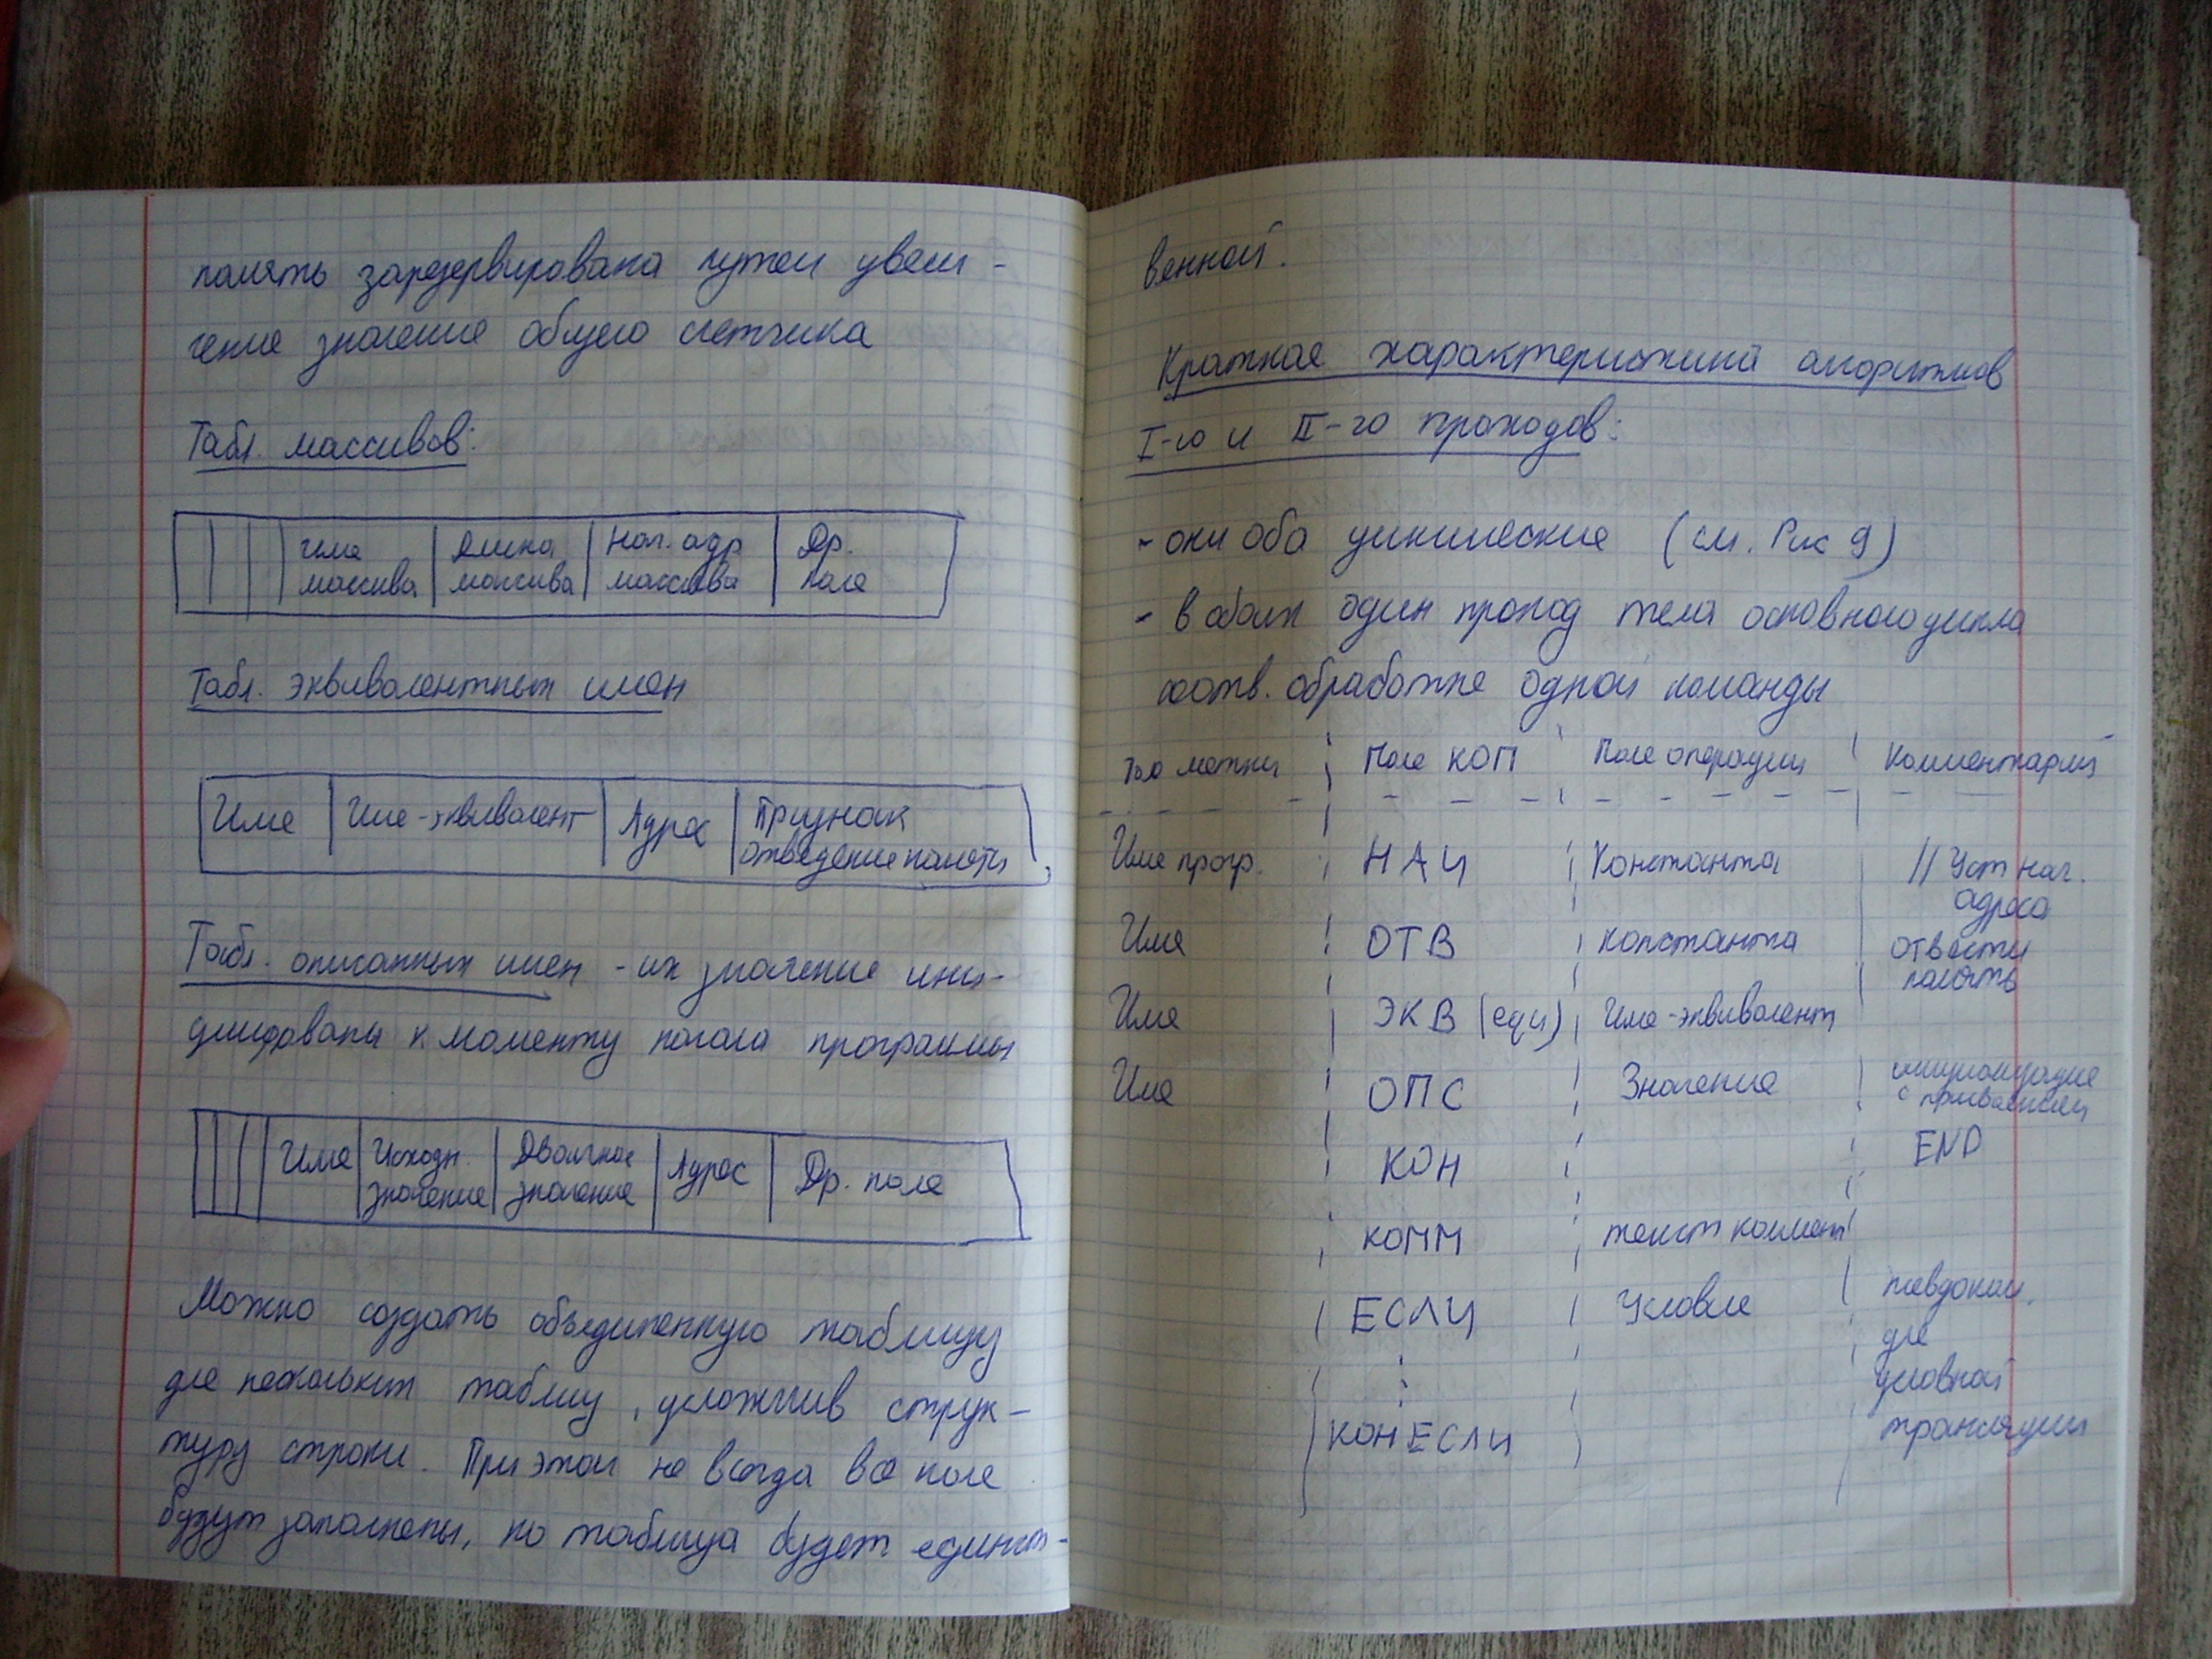 память зарезервирована путем увели-
чения значения общего счетчика
Табл. массивов:
имя массива | Длина массива | Нач. адр массива | Др. поля
Табл. эквивалентных имен
Имя | Имя-эквивалент | Адрес | Признак отведения памяти
Табл. описанных имен - их значение ини-
циированы к моменту начала программы
Имя | Исходн. значение | Двоичное значение | Адрес | Др. поля
Можно создать объединенную таблицу
для нескольких таблиц, усложнив струк-
туру строки. При этом не всегда все поля
будут заполнены, но таблица будет единст-
венной.
Краткая характеристика алгоритмов
I-го и II-го проходов:
- они оба циклические (см. Рис 9)
- в обоих один проход тела основного цикла
соотв. обработке одной команды
метки | Поле КОП | Поле операции | Комментарий
Имя прогр. | НАЧ | Константа | // Уст нач. адреса
Имя | ОТВ | константа | отвести память
Имя | ЭКВ (equ) | Имя-эквивалент
Имя | ОПС | Значение | инициализация с
КОН | END
КОММ | текст коммент
ЕСЛИ | Условие | псевдоком. для условной трансляции
⋮
КОНЕСЛИ